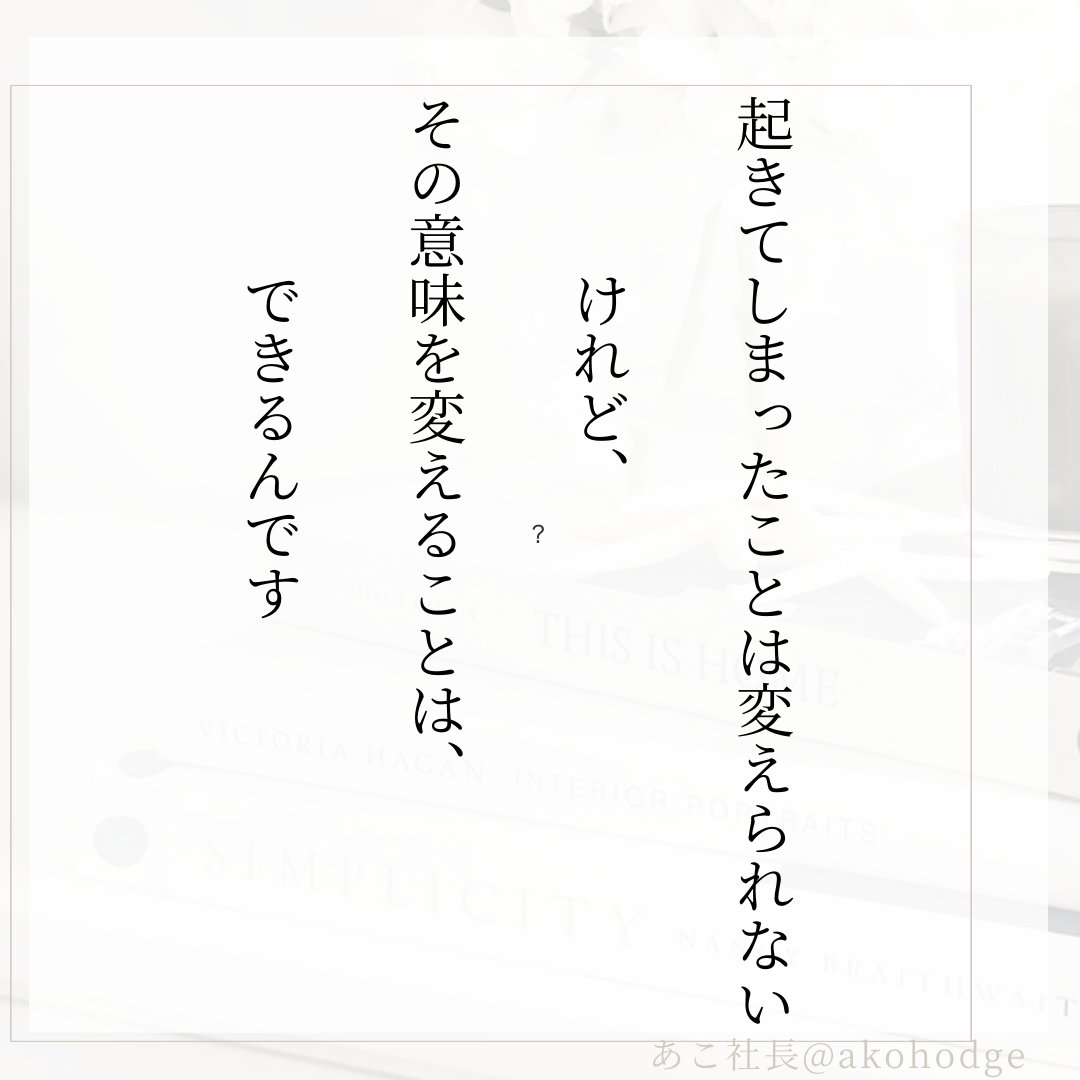 起きてしまったことは変えられない
けれど、
その意味を変えることは、
できるんです
?
THIS IS HOME
VICTORIA HAGAN INTERIOR PORTRAITS
SIMPLICITY
NANCY BRAITHWAIT
あこ社長@akohodge